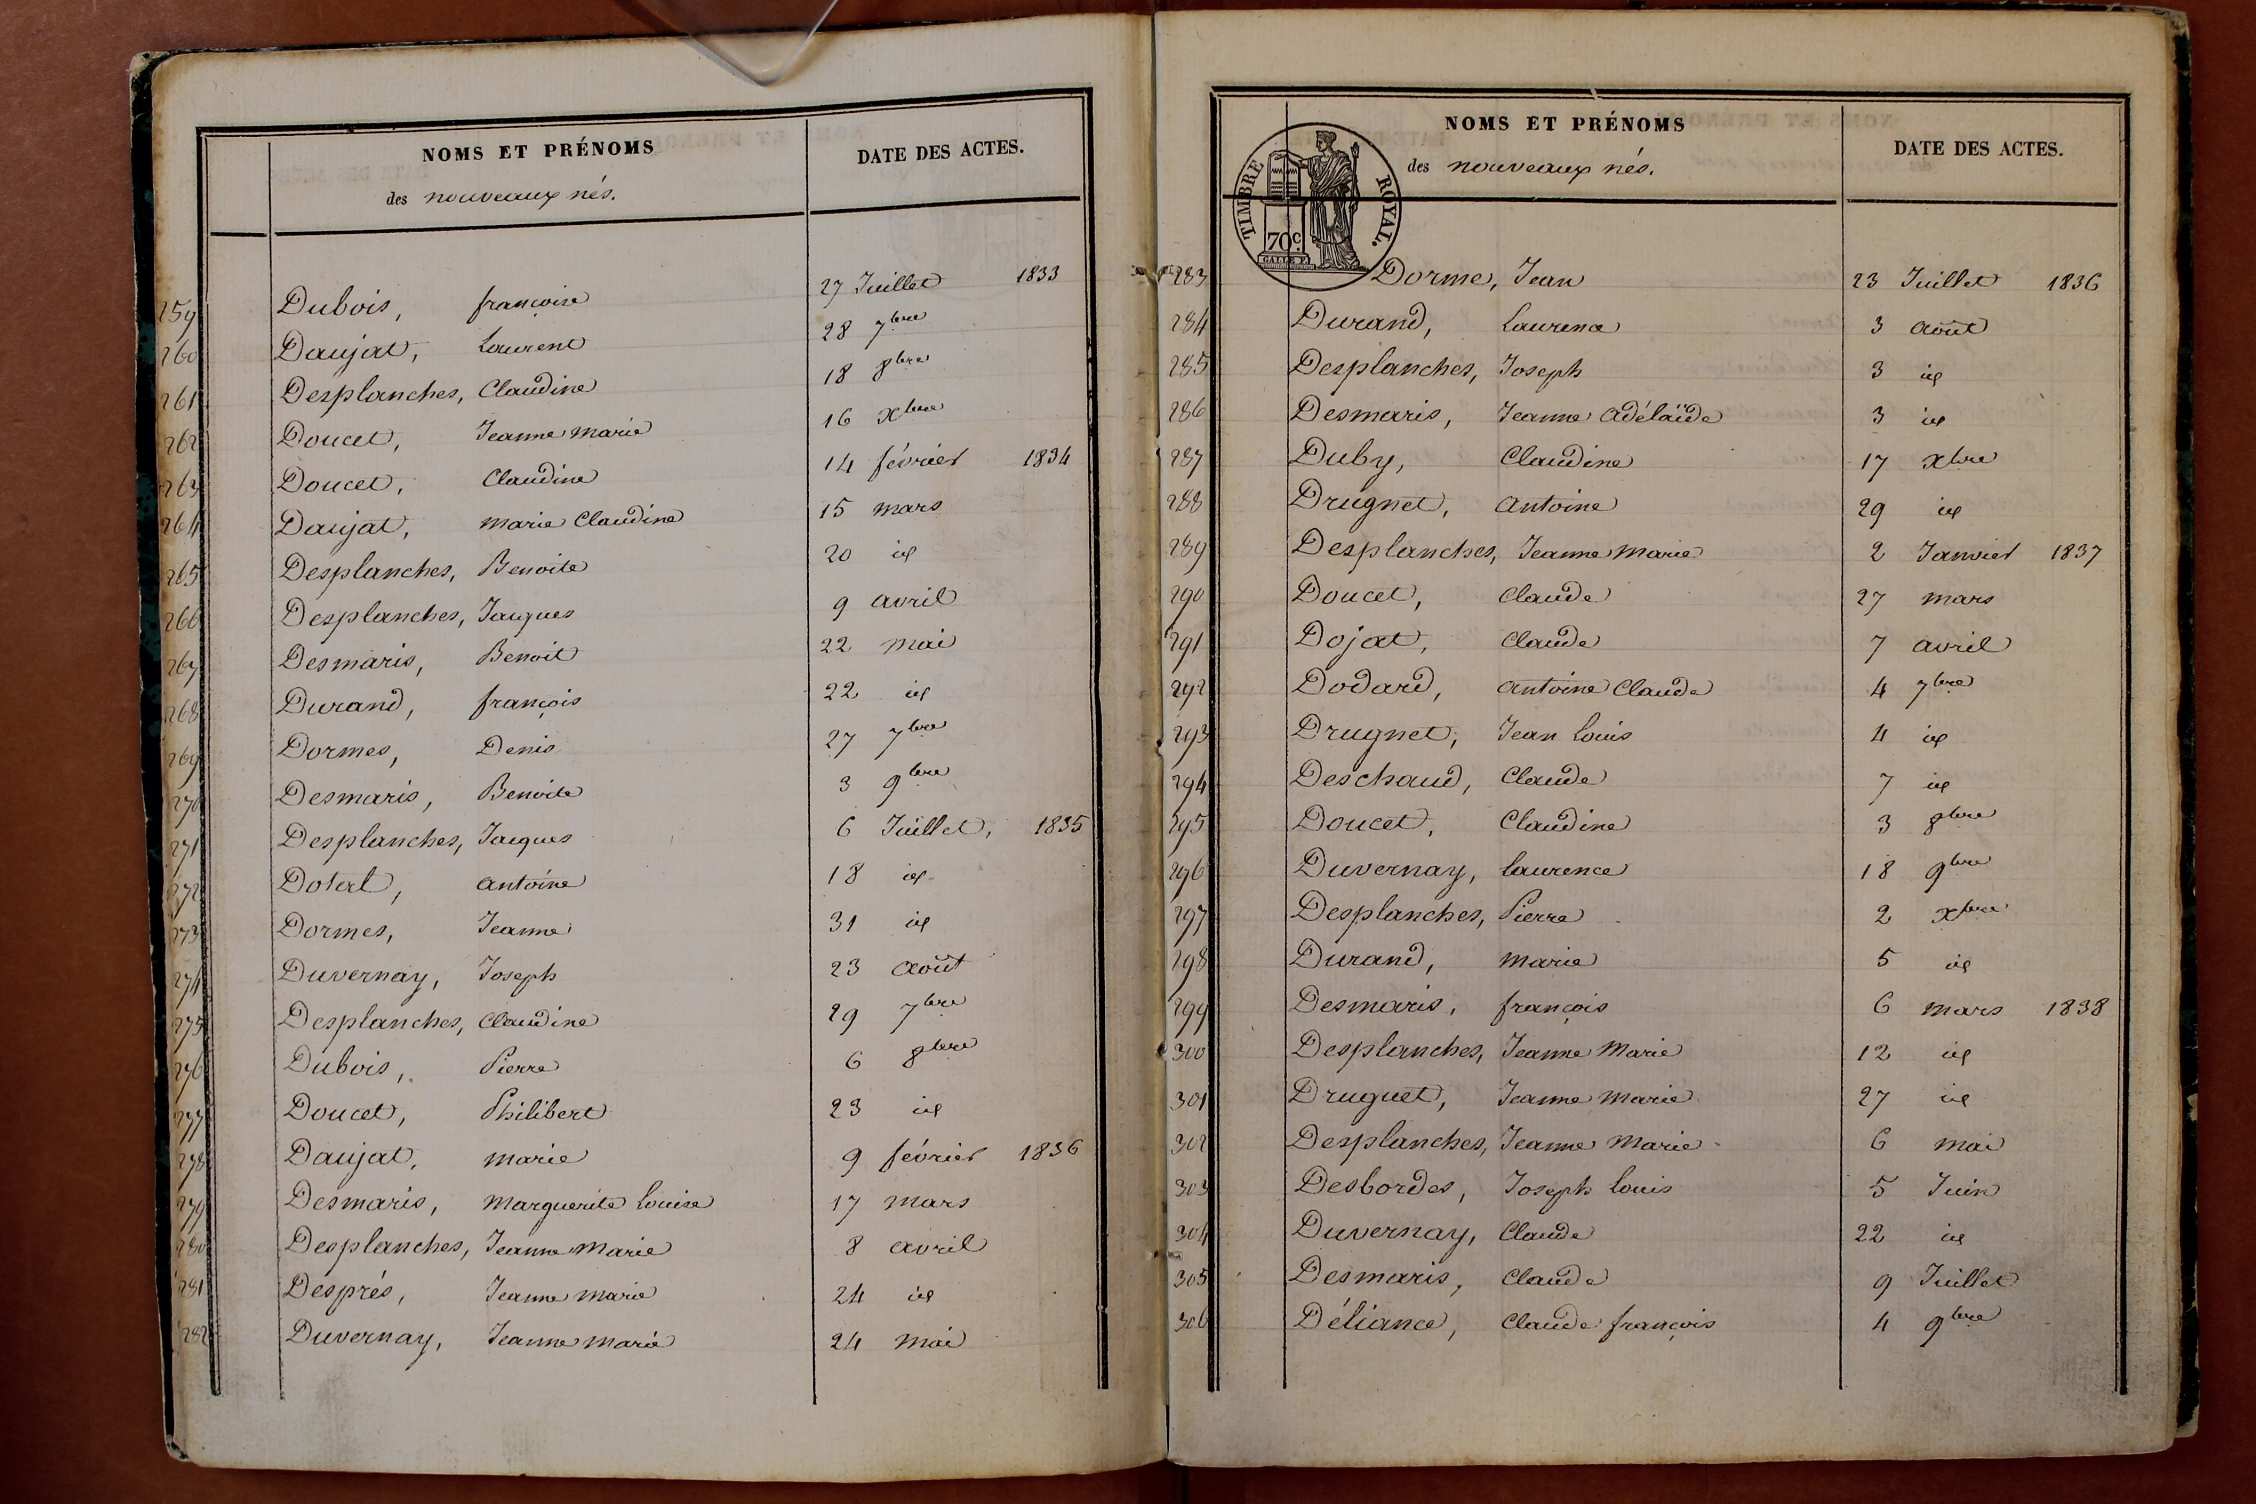 NOMS ET PRÉNOMS
des nouveaux nés.
DATE DES ACTES.
259 Dubois, françoise 27 Juillet 1833
260 Daujat, Laurent 28 7bre
261 Desplanches, Claudine 18 8bre
262 Doucet, Jeanne marie 16 xbre
263 Doucet, Claudine 14 février 1834
264 Daujat, marie Claudine 15 mars
265 Desplanches, Benoite 20 id
266 Desplanches, Jacques 9 avril
267 Desmaris, Benoit 22 mai
268 Durand, françois 22 id
269 Dormes, Denis 27 7bre
270 Desmaris, Benoite 3 9bre
271 Desplanches, Jacques 6 Juillet, 1835
272 antoine 18 id
273 Dormes, Jeanne 31 id
274 Duvernay, Joseph 23 août
275 Desplanches, Claudine 29 7bre
276 Dubois, Pierre 6 8bre
277 Doucet, Philibert 23 id
278 Daujat, marie 9 février 1836
279 Desmaris, marguerite Louise 17 mars
280 Desplanches, Jeanne Marie 8 avril
281 Després, Jeanne marie 24 id
282 Duvernay, Jeanne marie 24 mai
NOMS ET PRÉNOMS
des nouveaux nés.
DATE DES ACTES.
TIMBRE ROYAL.
70c
283 Dorme, Jean 23 Juillet 1836
284 Durand, Laurence 3 août
285 Desplanches, Joseph 3 id
286 Desmaris, Jeanne Adélaïde 3 id
287 Duby, Claudine 17 xbre
288 Drugnet, Antoine 29 id
289 Desplanches, Jeanne Marie 2 Janvier 1837
290 Doucet, Claude 27 mars
291 Dojat, Claude 7 avril
292 Dodard, antoine Claude 4 7bre
293 Drugnet, Jean Louis 4 id
294 Deschaud, Claude 7 id
295 Doucet, Claudine 3 8bre
296 Duvernay, Laurence 18 9bre
297 Desplanches, Pierre 2 xbre
298 Durand, marie 5 id
299 Desmaris, françois 6 mars 1838
300 Desplanches, Jeanne Marie 12 id
301 Druguet, Jeanne marie 27 id
302 Desplanches, Jeanne Marie 6 mai
303 Desbordes, Joseph Louis 5 Juin
304 Duvernay, Claude 22 id
305 Desmaris, Claude 9 Juillet
306 Déliance, Claude françois 4 9bre